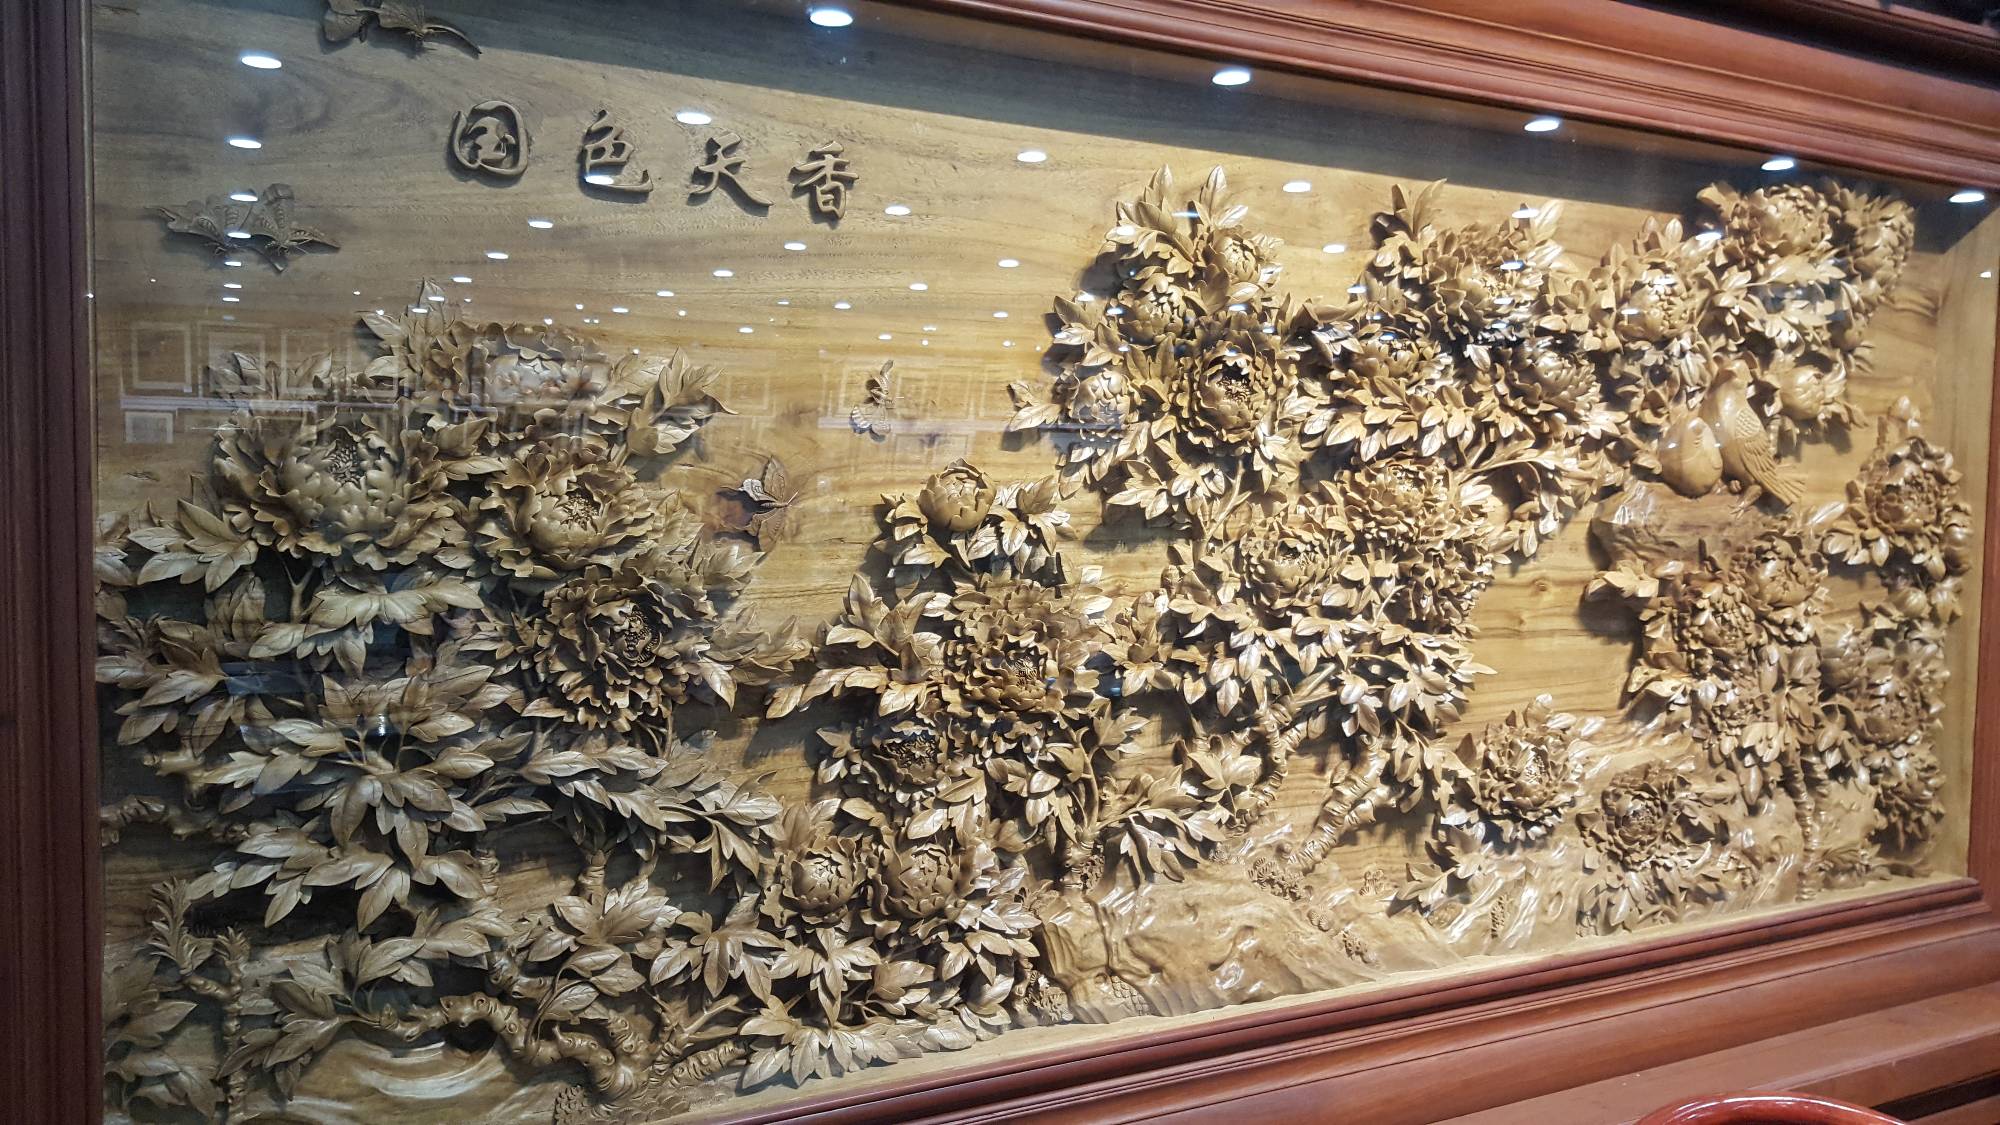 国色天香